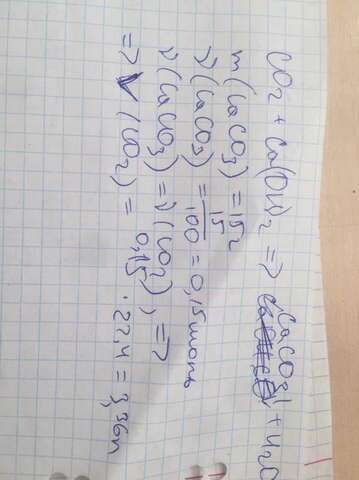 CO₂ + Ca(OH)₂ => CaCO₃↓ + H₂O
m(CaCO₃) = 15г
ν(CaCO₃) = 15/100 = 0,15 моль
ν(CaCO₃) = ν(CO₂), =>
=> V(CO₂) = 0,15 · 22,4 = 3,36л